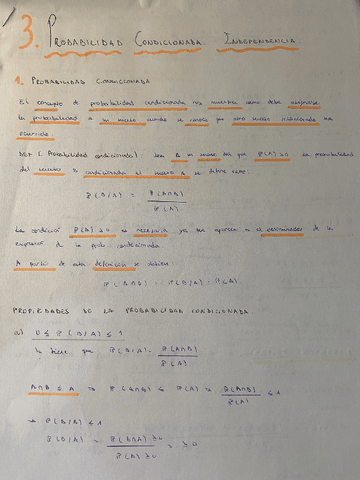 3. PROBABILIDAD CONDICIONADA. INDEPENDENCIA.
1. PROBABILIDAD CONDICIONADA
El concepto de probabilidad condicionada nos muestra como debe asignarse
la probabilidad a un suceso cuando se conoce que otro suceso relacionado ha
ocurrido.
DEF ( Probabilidad condicionada) Sea un suceso tal que P(A) > 0. La probabilidad
del suceso B condicionada al suceso A se define como:
P(B/A) = P(A∩B) / P(A)
La condición P(A) > 0 es necesaria ya que aparece en el denominador de la
expresión de la prob. condicionada.
A partir de esta definición se obtiene
P(A∩B) = P(B/A) · P(A).
PROPIEDADES DE LA PROBABILIDAD CONDICIONADA
a) 0 ≤ P(B/A) ≤ 1
Se tiene que P(B/A) = P(A∩B) / P(A)
A∩B ⊆ A ⇒ P(A∩B) ≤ P(A) ⇒ P(A∩B) / P(A) ≤ 1
⇒ P(B/A) ≤ 1
P(B/A) = P(A∩B) ≥ 0 / P(A) > 0 = ≥ 0